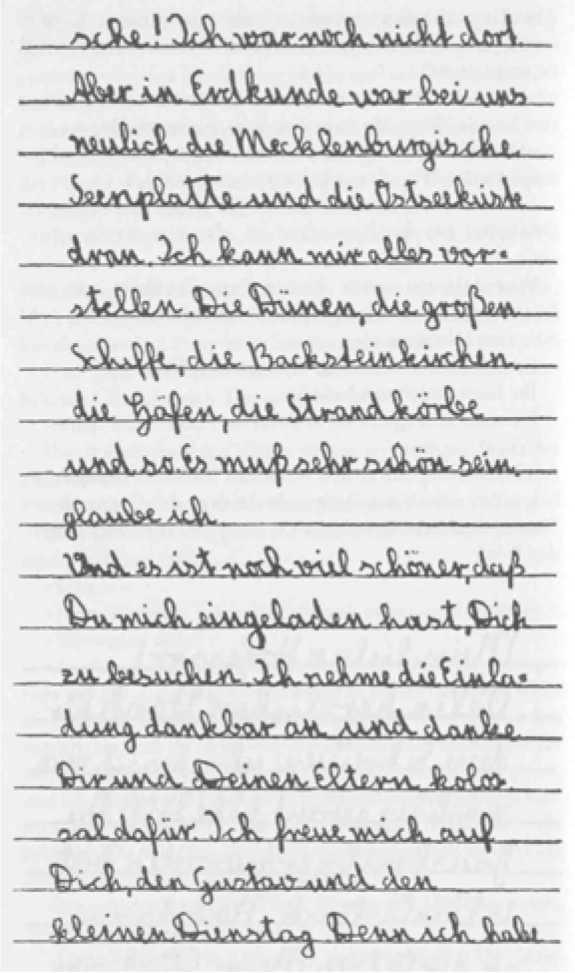 sche! Ich war noch nicht dort.
Aber in Erdkunde war bei uns
neulich die Mecklenburgische
Seenplatte und die Ostseeküste
dran. Ich kann mir alles vor-
stellen. Die Dünen, die großen
Schiffe, die Backsteinkirchen,
die Häfen, die Strandkörbe
und so. Es muß sehr schön sein,
glaube ich.
Und es ist noch viel schöner, daß
Du mich eingeladen hast, Dich
zu besuchen. Ich nehme die Einla-
dung dankbar an und danke
Dir und Deinen Eltern kolos-
sal dafür. Ich freue mich auf
Dich, den Gustav und den
kleinen Dienstag. Denn ich habe